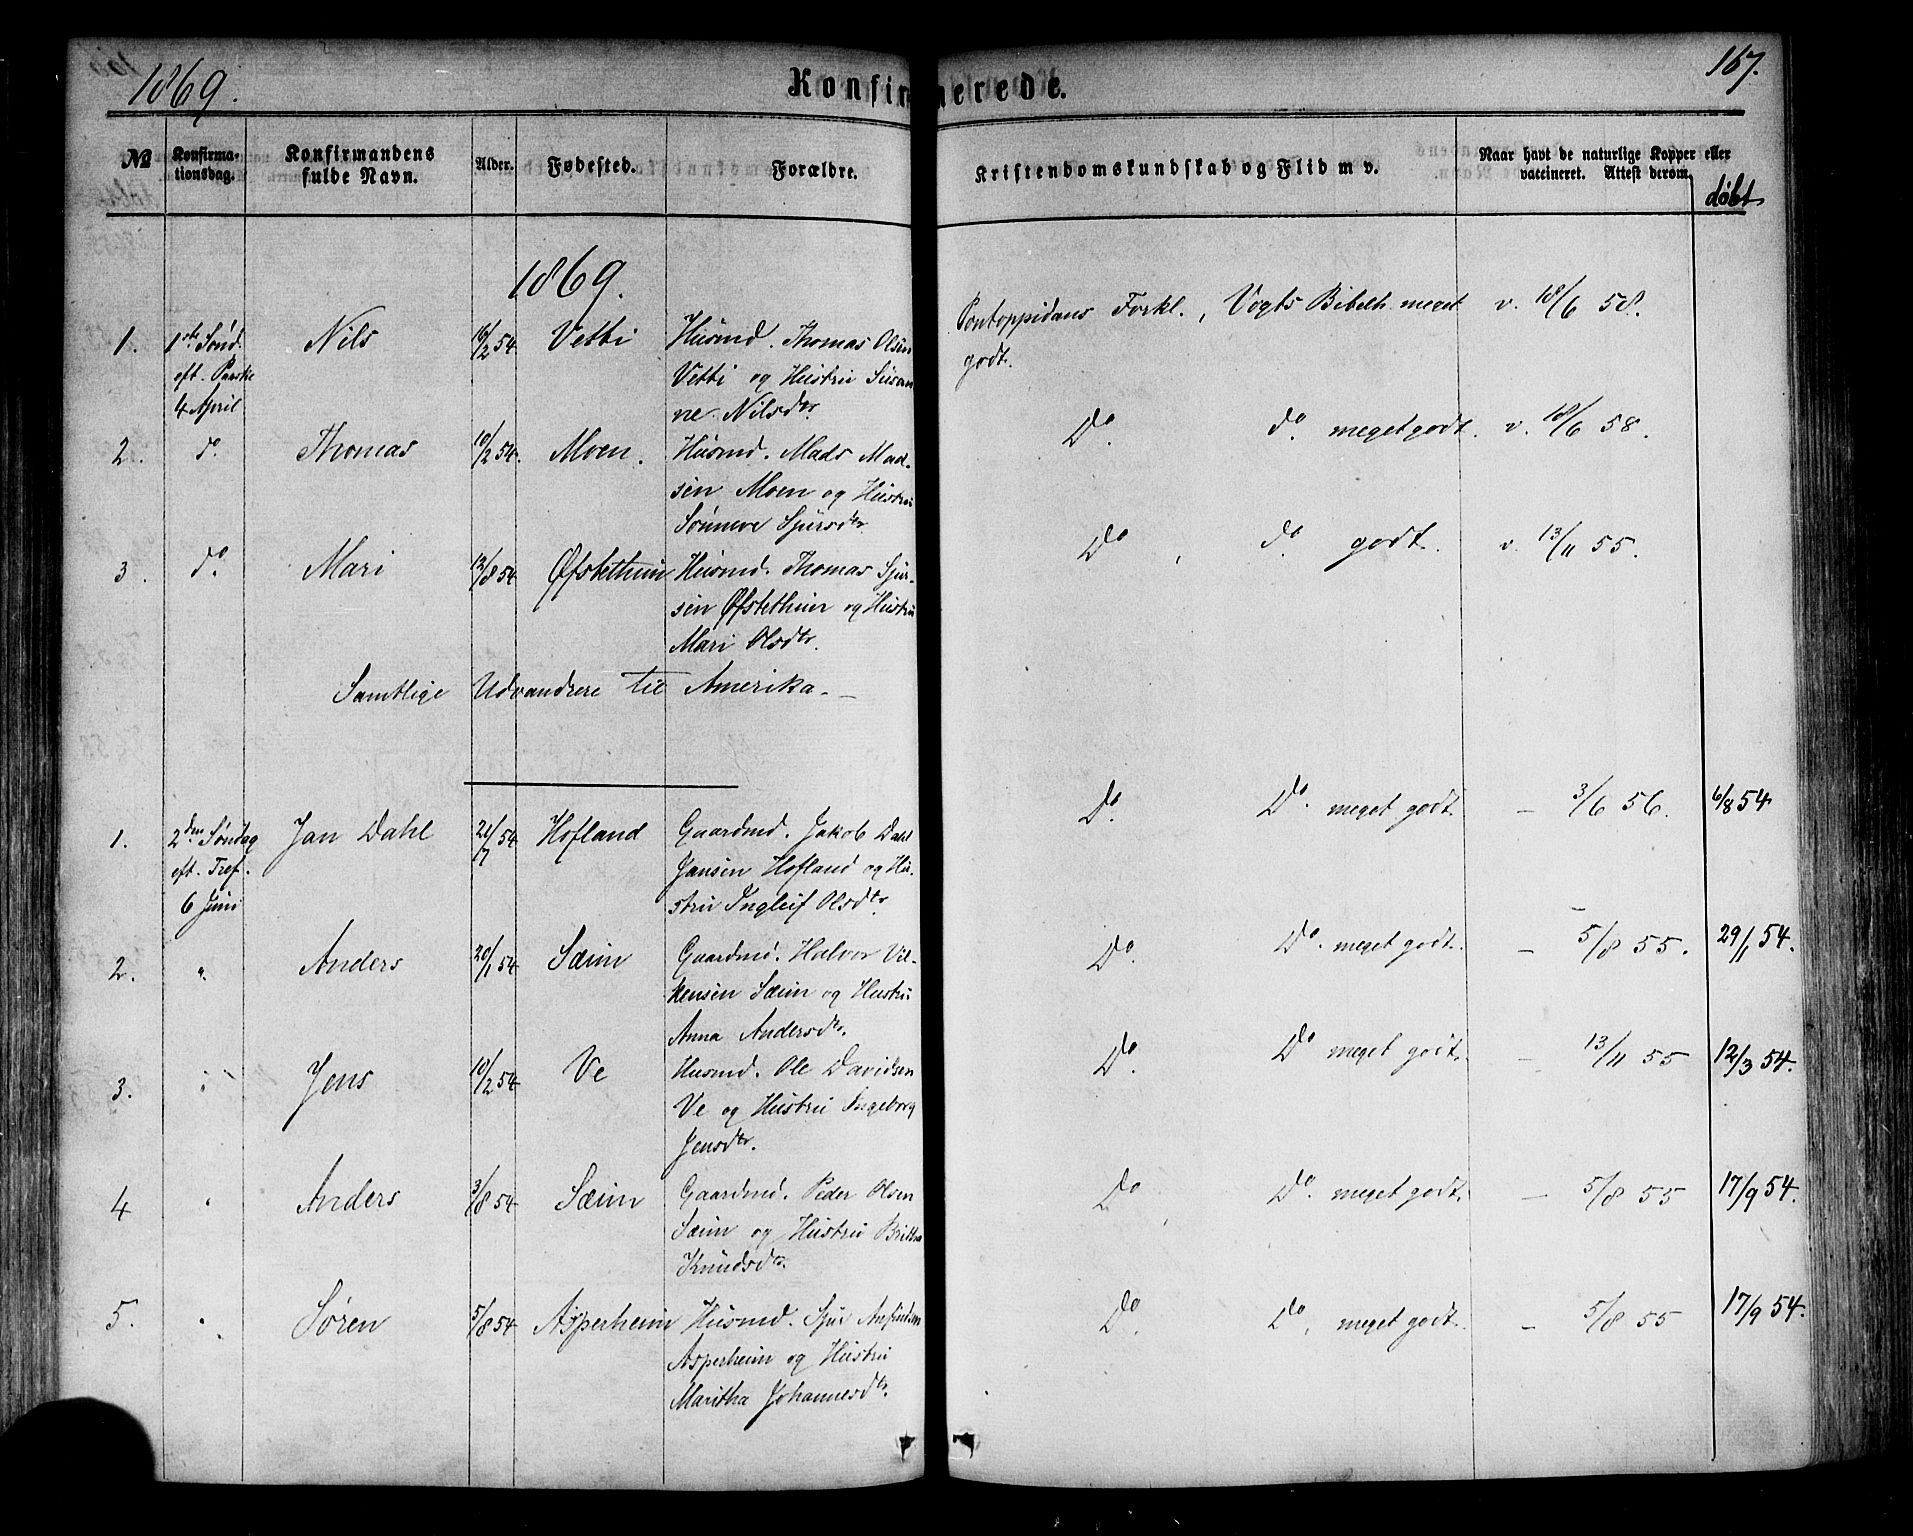 1869. Konfirmerede. 167.
№ Konfirma- Konfirmandens Alder. Fødested. Forældre. Kristendomskundskab og Flid m v. Naar havt de naturlige Kopper eller
tionsdag. fulde Navn. vaccineret. Attest derom. døbt
1869.
1. 1ste Sønd. Nils 16/2 54 Vetti Husmd. Thomas Olsen Pontoppidans Forkl., Vogts Bibelh. meget v. 18/6 58.
eft. Paaske Vetti og Hustru Susan godt.
4 April ne Nilsdtr.
2. do Thomas 10/2 54. Moen. Husmd. Mads Mad- Do. do. meget godt. v. 18/6 58.
sen Moen og Hustru
Sønneve Sjursdtr.
3. do. Mari 12/8 54 Øfstethun Husmd. Thomas Sjur- Do, do. godt. v. 13/11 55.
sen Øfstethun og Hustru
Mari Olsdtr.
Samtlige Udvandrere til Amerika. —
1. 2den Søndag Jan Dahl 21/7 54 Hofland Gaardmd. Jakob Dahl Do. Do. meget godt. — 3/6 56. 6/8 54
eft. Tref. Jansen Hofland og Hu-
6 Juni stru Ingleif Olsdtr.
2. " Anders 20/1 54 Sæim Gaardmd. Halvor Vil- Do. Do. meget godt. — 5/8 55. 29/1 54.
kensen Sæim og Hustru
Anna Andersdtr.
3. " Jens 10/2 54 Ve Husmd. Ole Davidsen Do. Do meget godt. — 13/11 55 12/3 54.
Ve og Hustru Ingeborg
Jensdtr.
4 " Anders 3/8 54 Sæim Gaardmd. Peder Olsen Do. Do. meget godt. — 5/8 55 17/9 54.
Sæim og Hustru Britha
Knudsdtr.
5. " Søren 5/8 54 Asperheim Husmd. Sjur Anfindsen Do. Do. meget godt. — 5/8 55 17/9 54.
Asperheim og Hustru
Maritha Johannesdtr.